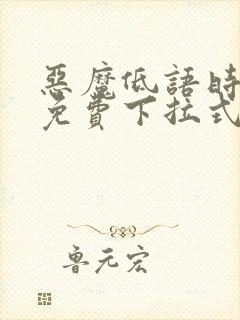 惡魔低語時
免費下拉式
魯元宏